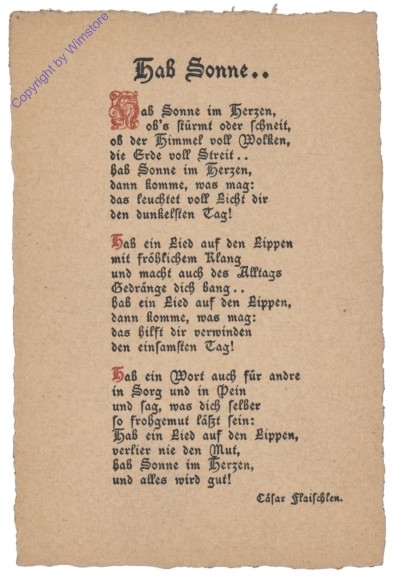 Copyright by Wimstore
Hab Sonne..
Hab Sonne im Herzen,
ob's stürmt oder schneit,
ob der Himmel voll Wolken,
die Erde voll Streit..
hab Sonne im Herzen,
dann komme, was mag:
das leuchtet voll Licht dir
den dunkelsten Tag!
Hab ein Lied auf den Lippen
mit fröhlichem Klang
und macht auch des Alltags
Gedränge dich bang..
hab ein Lied auf den Lippen,
dann komme, was mag:
das hilft dir verwinden
den einsamsten Tag!
Hab ein Wort auch für andre
in Sorg und in Pein
und sag, was dich selber
so frohgemut läßt sein:
Hab ein Lied auf den Lippen,
verlier nie den Mut,
hab Sonne im Herzen,
und alles wird gut!
Cäsar Flaischlen.